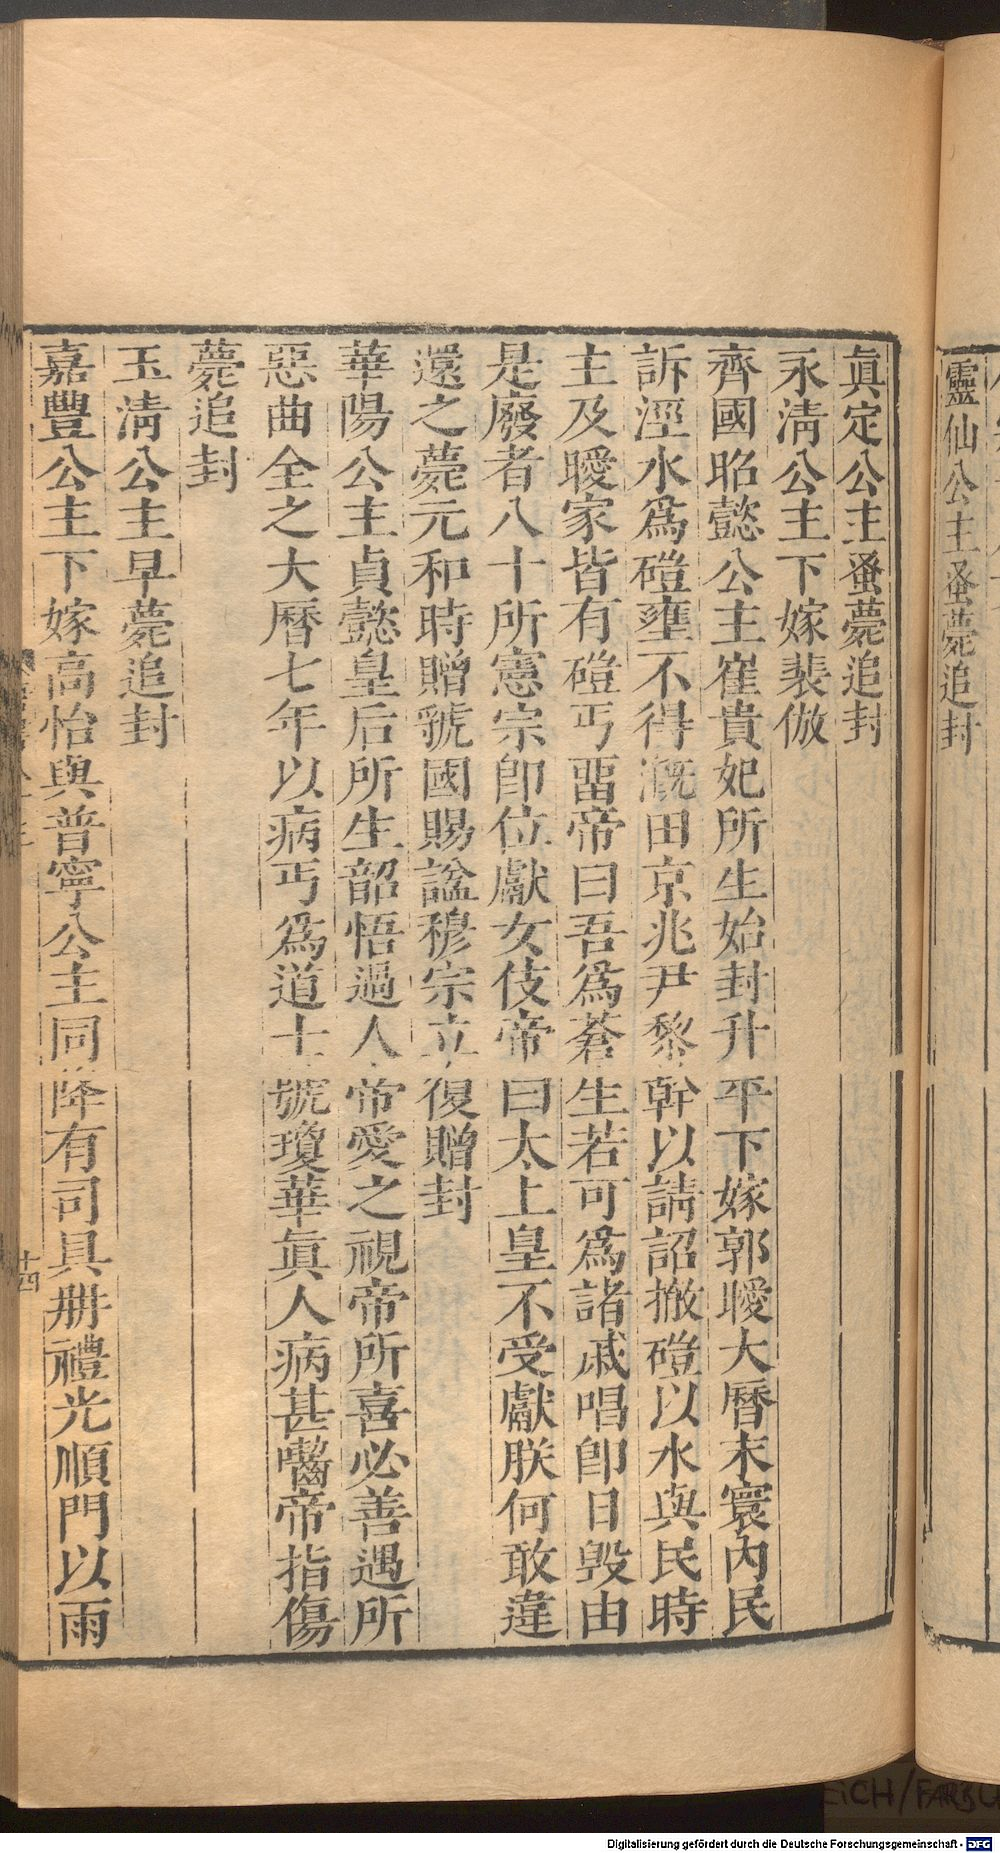 靈仙公主蚤薨追封
眞定公主蚤薨追封
永淸公主下嫁裴倣
齊國昭懿公主崔貴妃所生始封升平下嫁郭曖大曆末寰內民
訴涇水爲磑壅不得漑田京兆尹黎幹以請詔撤磑以水與民時
主及曖家皆有磑丐畱帝曰吾爲蒼生若可爲諸戚唱卽日毁由
是廢者八十所憲宗卽位獻女伎帝曰太上皇不受獻朕何敢違
還之薨元和時贈虢國賜諡穆宗立復贈封
華陽公主貞懿皇后所生韶悟過人帝愛之視帝所喜必善遇所
惡曲全之大曆七年以病丐爲道士號瓊華眞人病甚齧帝指傷
薨追封
玉淸公主早薨追封
嘉豐公主下嫁高怡與普寧公主同降有司具册禮光順門以雨
十四
Digitalisierung gefördert durch die Deutsche Forschungsgemeinschaft - DFG